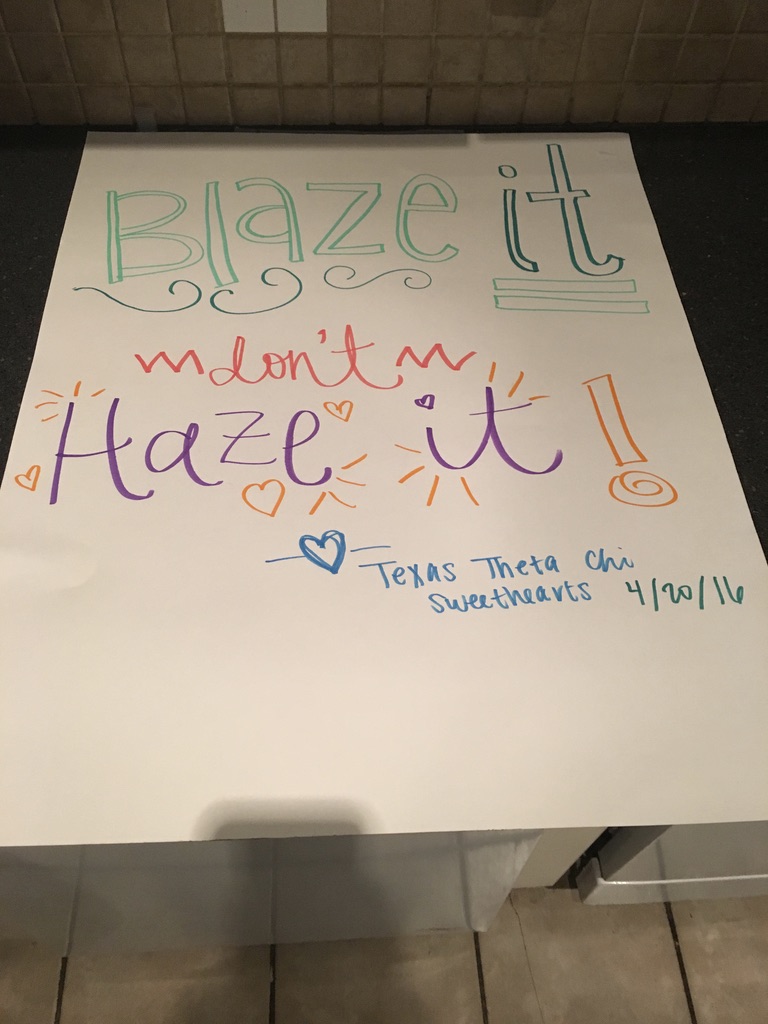 Blaze it
don't
Haze it!
Texas Theta Chi
Sweethearts 4/20/16